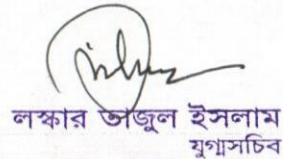 লস্কার তাজুল ইসলাম
যুগ্মসচিব